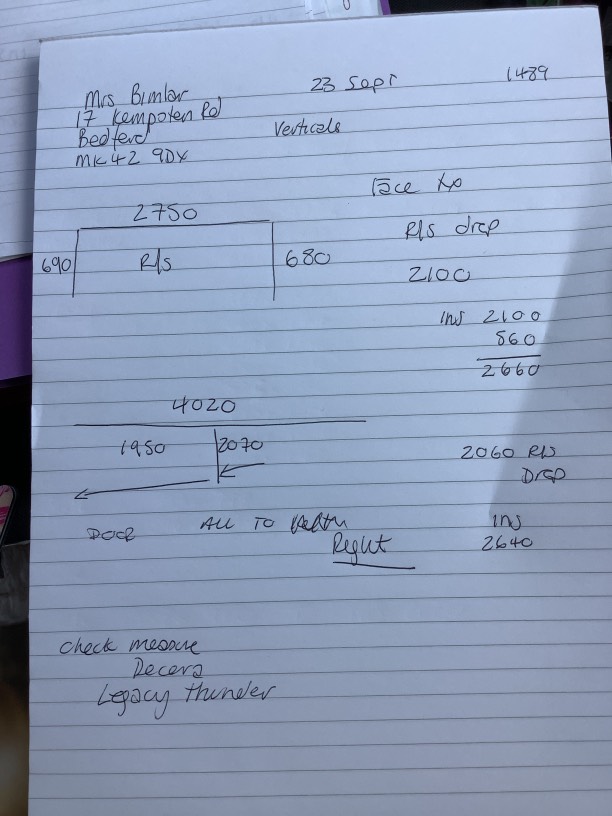 23 Sept
1489
Mrs Bimlar
17 Kempoten Rd
Bedford
MK42 9DX
Verticals
Face fix
2750
R/s drop
690 R/s 680
2100
ins 2100
560
2660
4020
1950 2070
2060 R/s
Drop
ALL TO
Right
Door
ins
2640
check measure
Decora
Legacy thunder